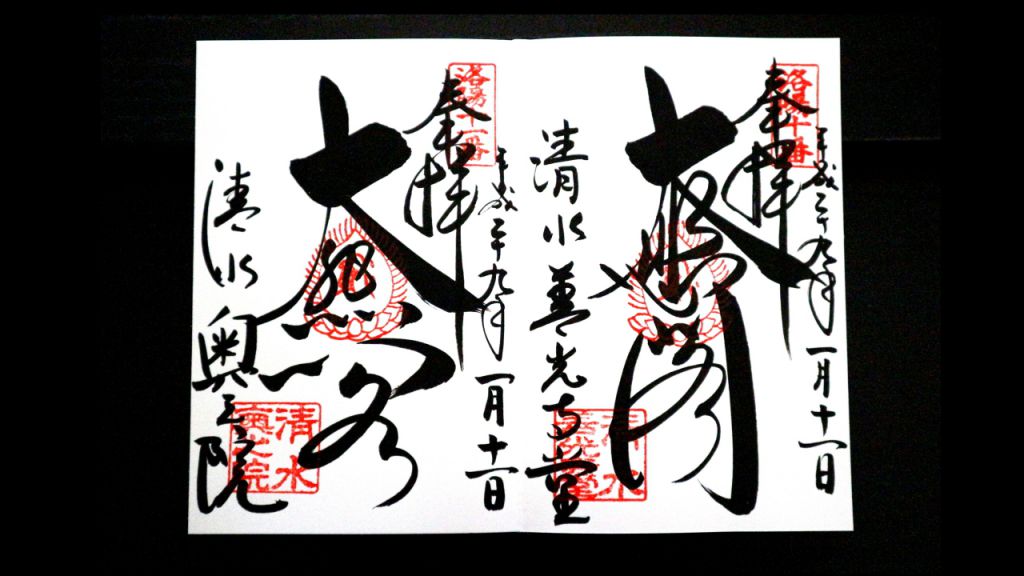 洛陽十番
奉拝
平成二十九年一月十一日
大悲閣
清水善光寺堂
洛陽十一番
奉拝
平成二十九年一月十一日
大
清水奥之院
清水
奥之院